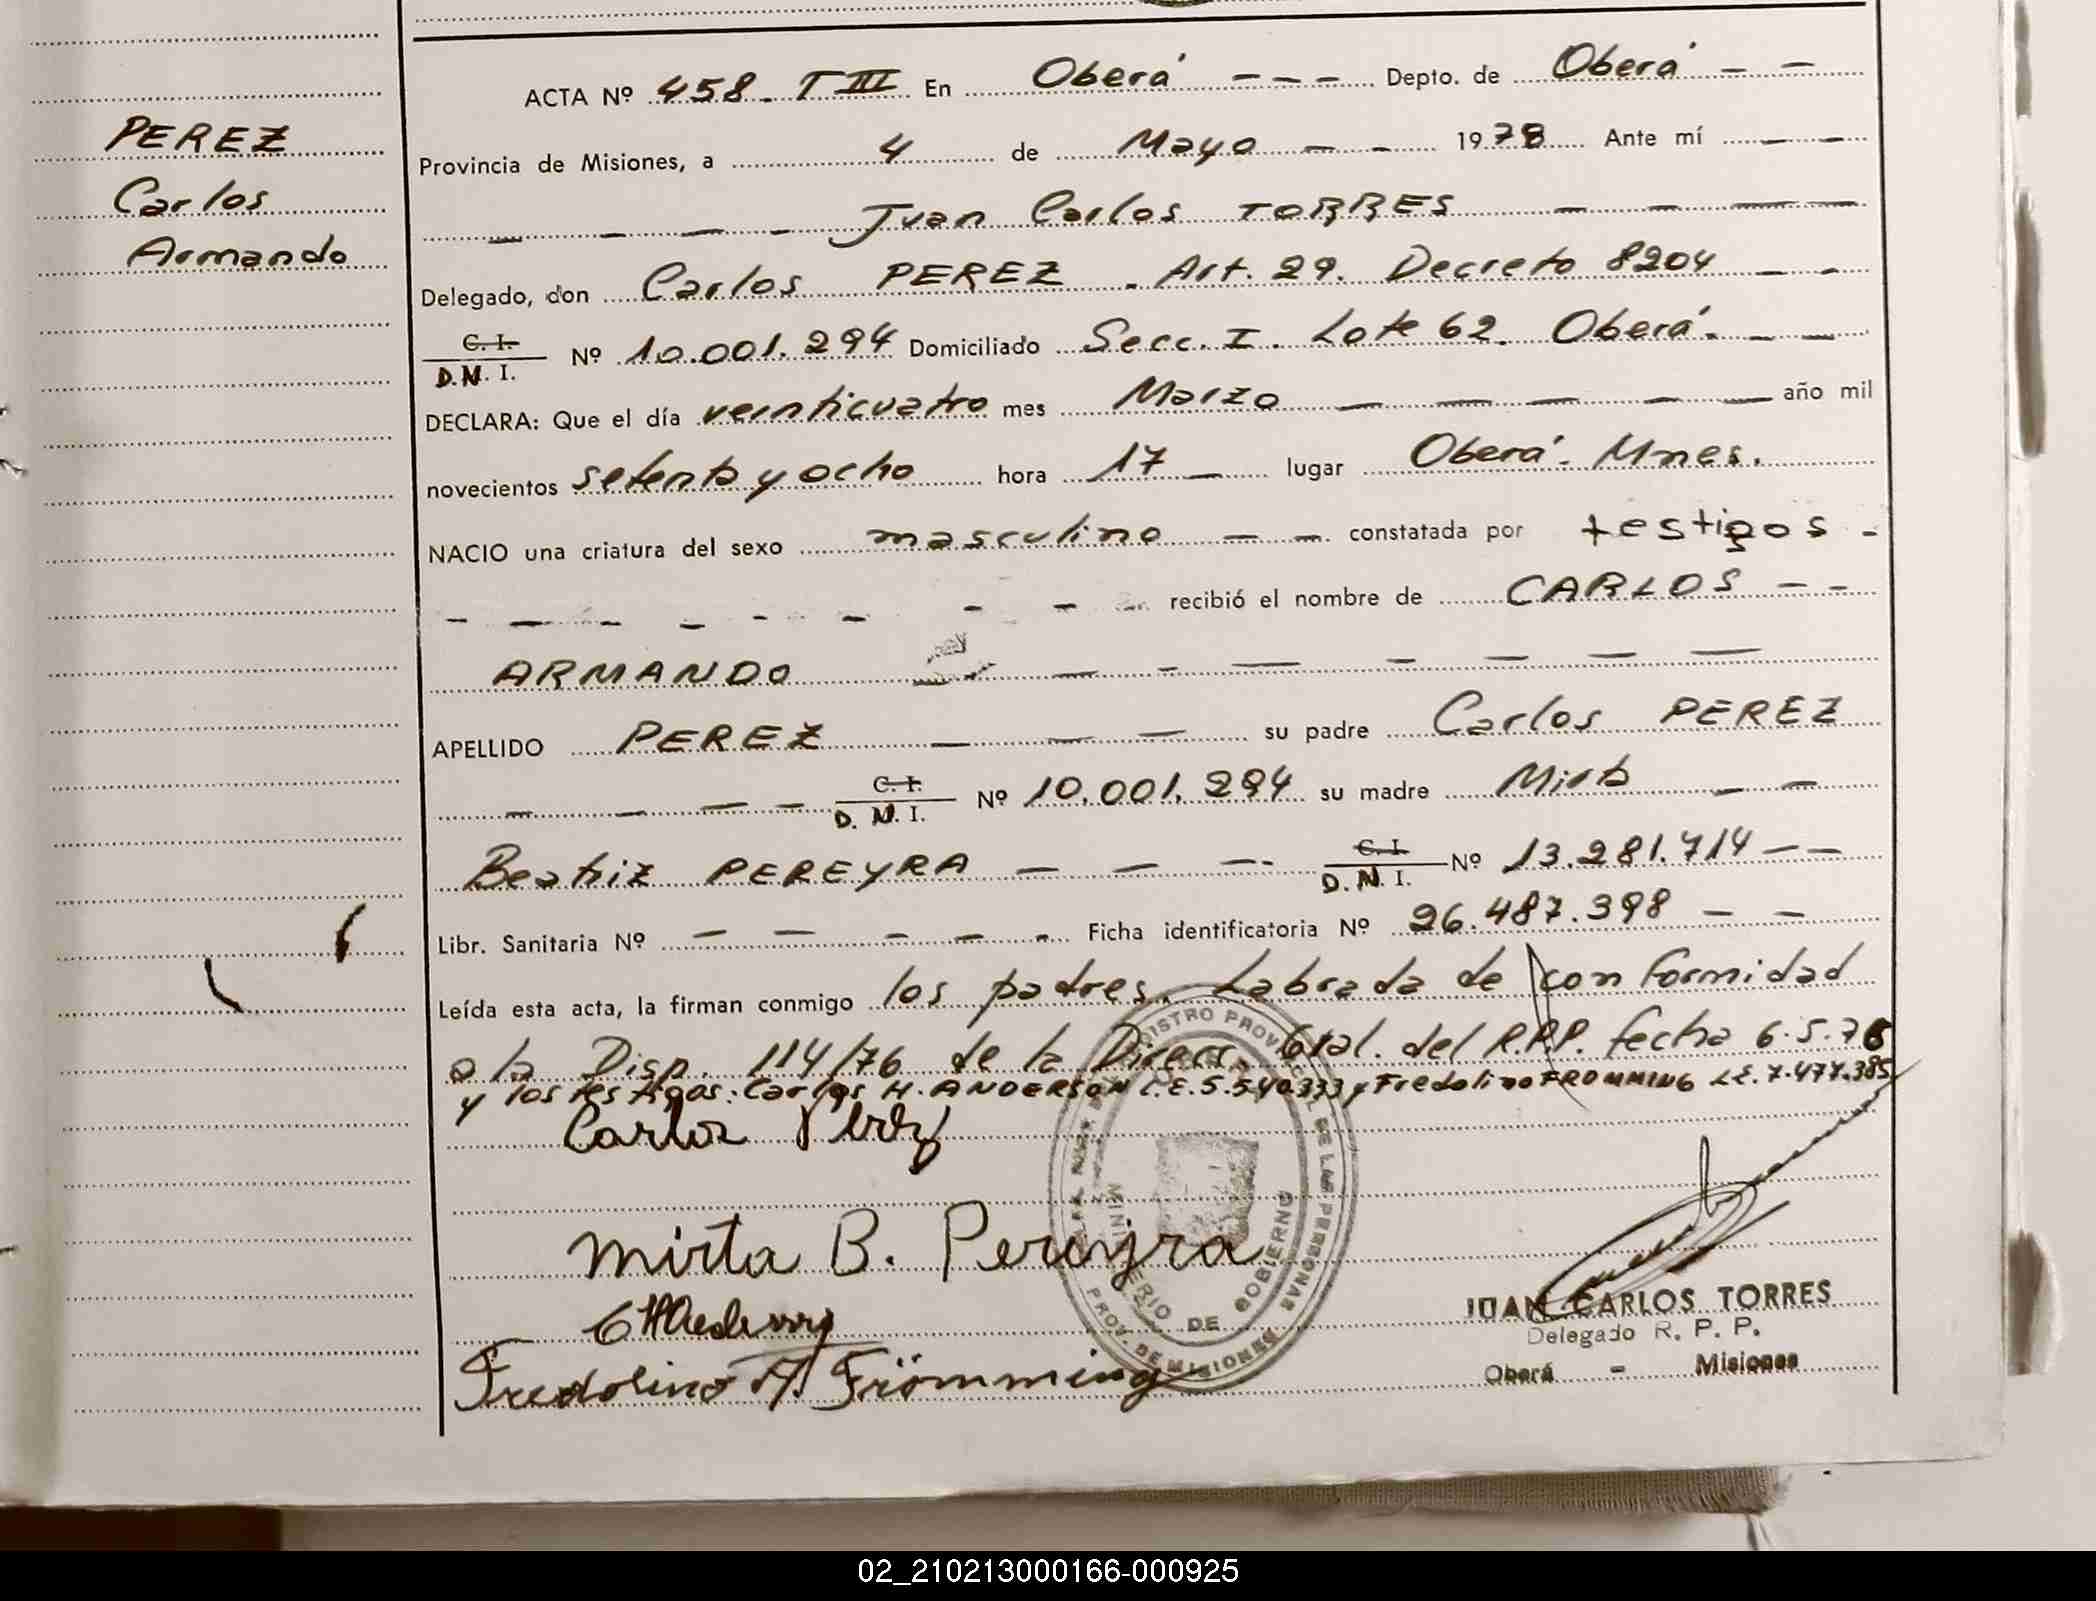 PEREZ
Carlos
Armando
ACTA Nº 458. T III En Oberá --- Depto. de Oberá --
Provincia de Misiones, a 4 de Mayo -- 1978 Ante mí --
---- Juan Carlos TORRES ----
Delegado, don Carlos PEREZ. Art. 29. Decreto 8204 --
C. I.
D.N.I. Nº 10.001.294 Domiciliado Secc. I. Lote 62. Oberá. --
DECLARA: Que el día veinticuatro mes Marzo ----- año mil
novecientos setenta y ocho hora 17 - lugar Oberá. Mnes.
NACIO una criatura del sexo masculino -- constatada por testigos -
-------- recibió el nombre de CARLOS --
ARMANDO -------
APELLIDO PEREZ --- su padre Carlos PEREZ
---- C. I. D. N. I. Nº 10.001.294 su madre Mirta --
Beatriz PEREYRA --- C. I. D. N. I. Nº 13.281.714 --
Libr. Sanitaria Nº ----- Ficha identificatoria Nº 26.487.398 --
Leída esta acta, la firman conmigo los padres. Labrada de conformidad
a la Disp. 114/76 de la Direcc. Gral. del R.P.P. fecha 6.5.76
y los testigos: Carlos H. ANDERSON L.E. 5.540.333 y Fredolino FROMMING L.E. 7.477.385
Carlos Perez
Mirta B. Pereyra
Fredolino A. Frömming
REGISTRO PROVINCIAL DE LAS PERSONAS
MINISTERIO DE GOBIERNO
PROV. DE MISIONES
JUAN CARLOS TORRES
Delegado R. P. P.
Oberá - Misiones
02_210213000166-000925